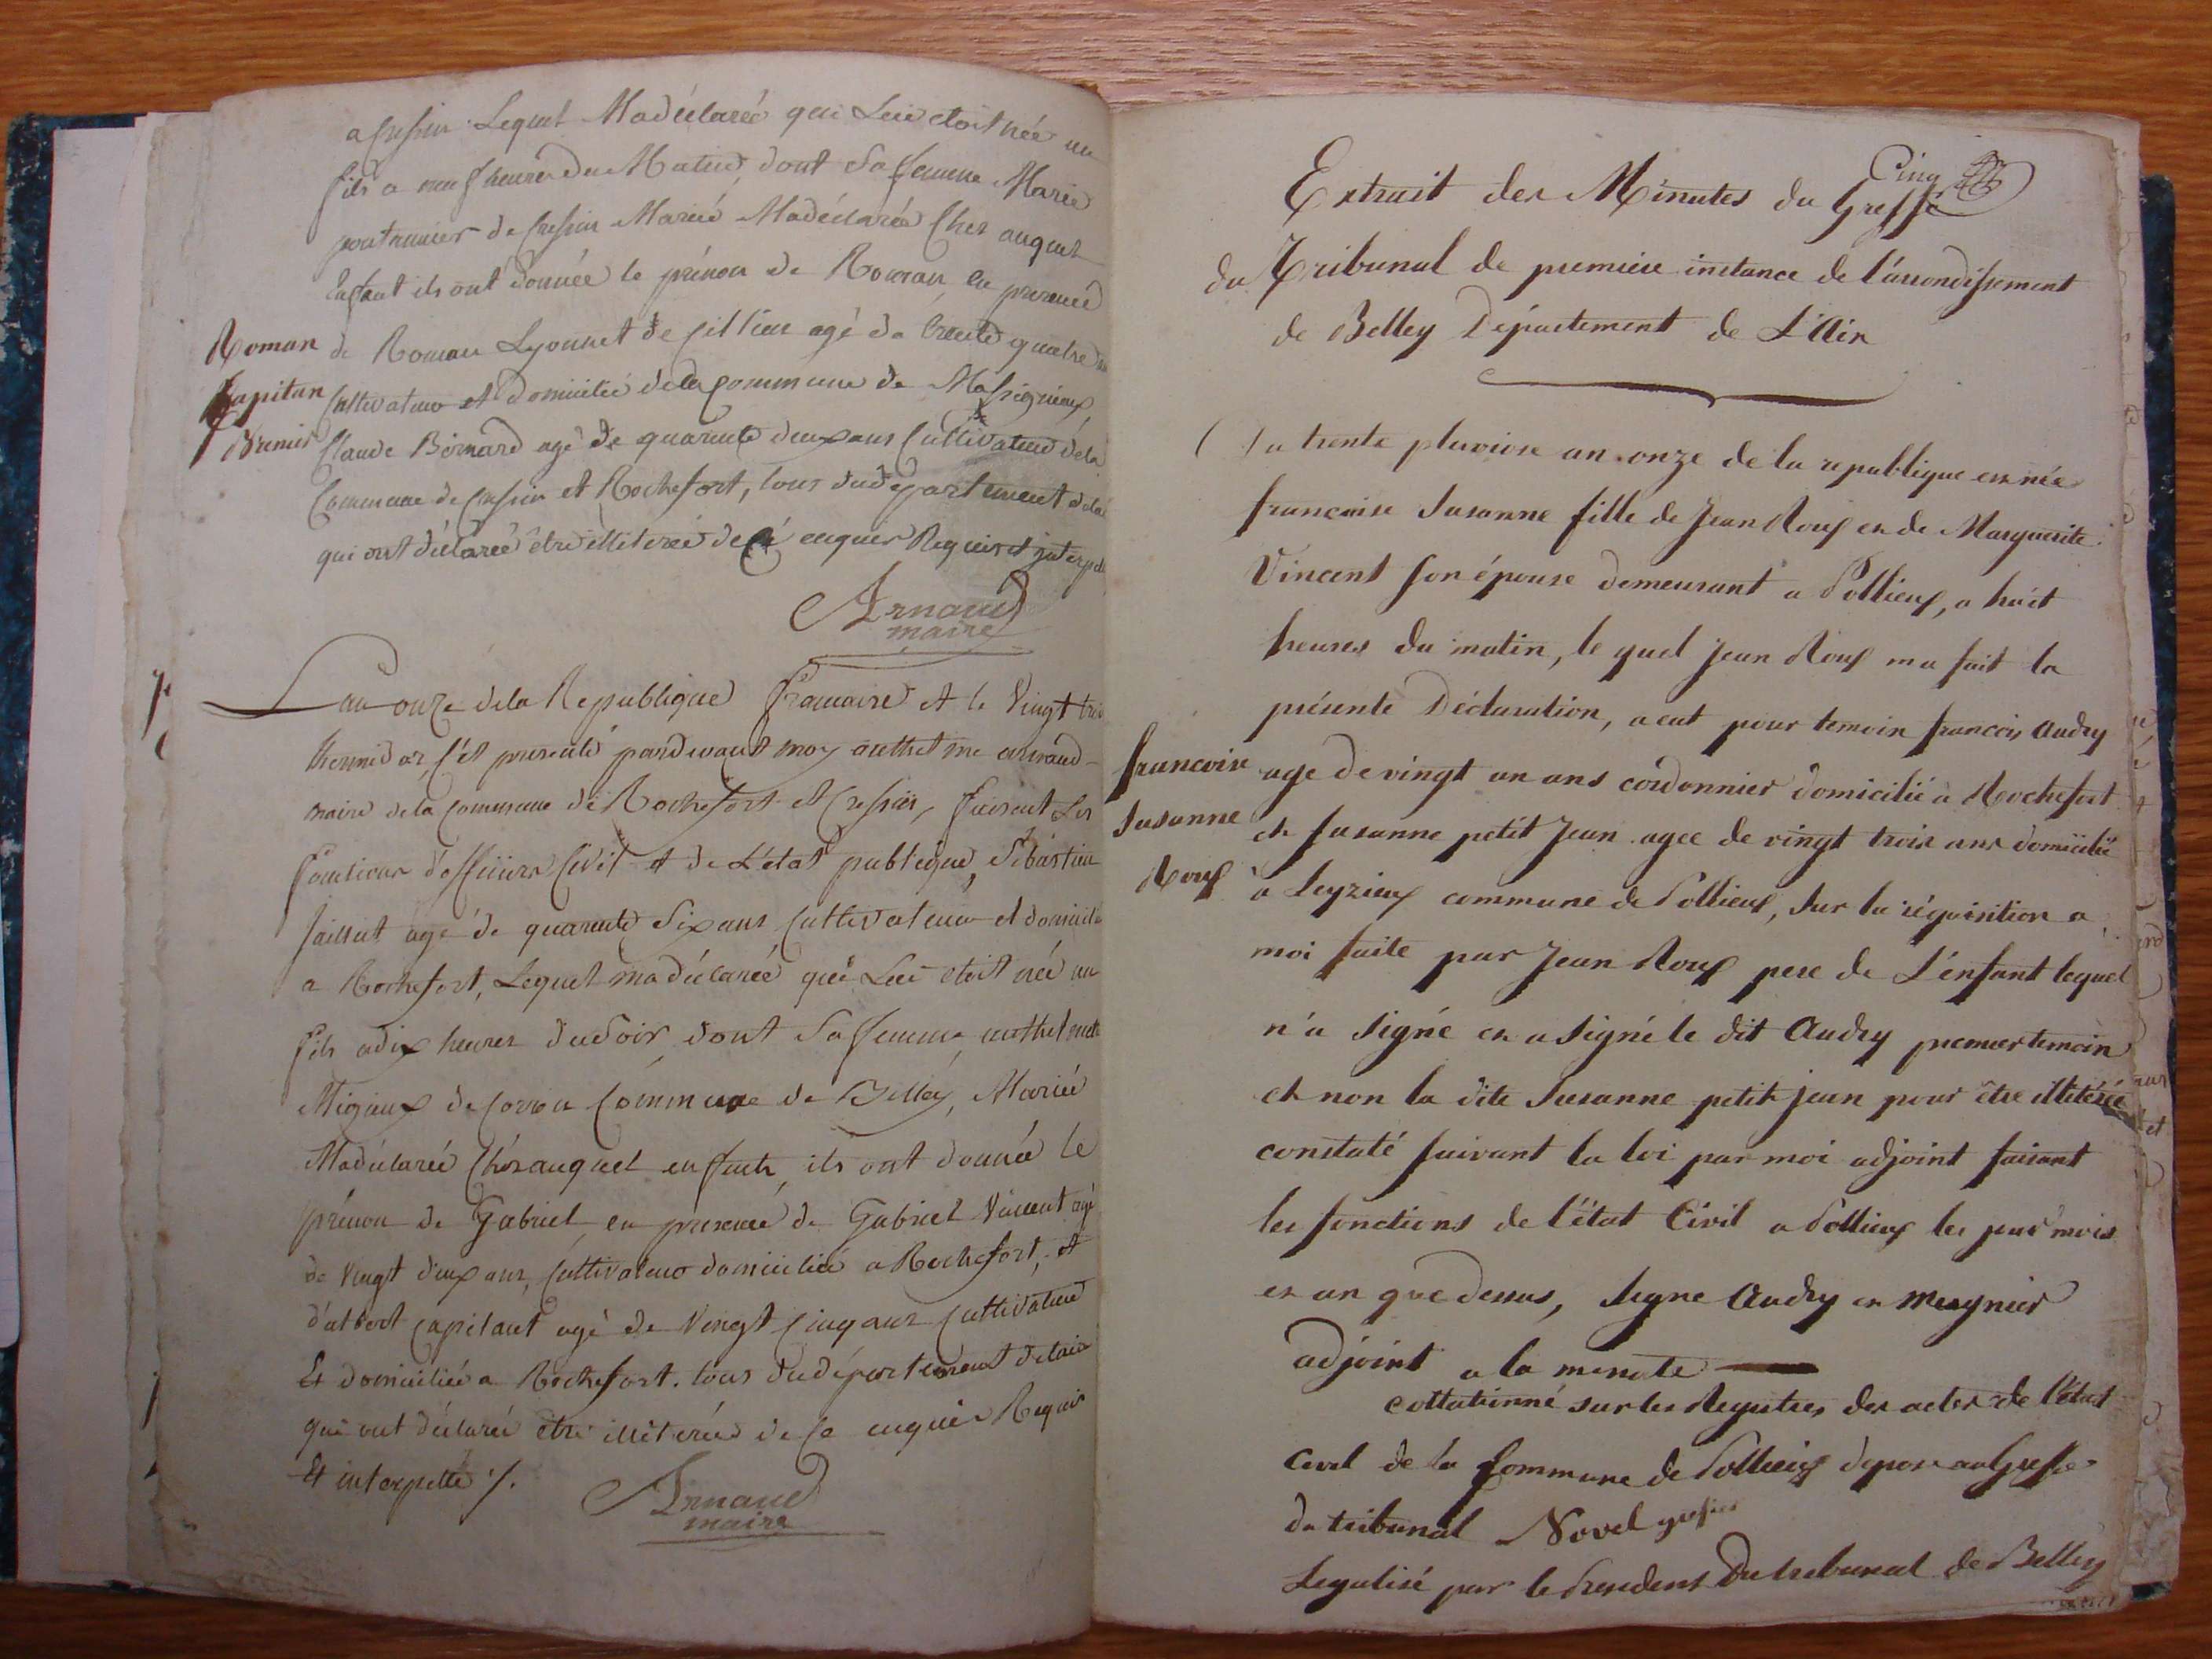 a Cressin Lequel Madéclaréé qui Lui étoit née un
fils a neuf heures du Matin, dont Sa femme Marie
de Cressin Marieé Madéclaréé Chés auquel
Enfant ils ont donnée le prénon de Roman en presence
de Roman Lyonnet de agé de trente quatre
Cultivateur et domicilié dela Commune de Massignieux,
Claude Bornard agé de quarente deux ans Cultivateur dela
Commune de Cressin et Rochefort, tous du département dela
qui ont déclareé être illiteréé de ce enquier Requis et jnterpell
Arnaud
maire
Roman
Capitan
Brenier
Lan onze dela Republique francaise et le Vingt trois
thermidor, s'ét presenté pardevant moy anthelme arnaud
maire dela Commune de Rochefort et Cressin, faisent Les
fonctions d'officiers Civil et de L'état publique, Sébastien
agé de quarente Six ans Cultivateur et domicilié
a Rochefort, Lequel madéclareé qui Lui étoit née un
fils a dix heures du Soir, dont Sa femme, anthelmette
Migieux de Coron Commune de Belley, Marieé
Madéclareé Chés auquel enfant, ils ont donnée le
prénon de Gabriel, en presence de Gabriel Vincent agé
de Vingt deux ans, Cultivateur domiciliée a Rochefort, et
d'albert Capitant agé de Vingt Cinq ans Cultivateur
Et domiciliée a Rochefort. tous du département delain
qui ont déclareé étre illiterée de Ce enquier Requis
Et interpellé ./.
Arnaud
maire
Cinq
Extrait des Minutes du Greffe
du Tribunal de premiere instance de l'arrondissement
de Belley Département de L'Ain
Du trente pluviose an onze de la republique est née
francoise Susanne fille de Jean Roux et de Marguerite
Vincent son épouse demeurant a Pollieux, a huit
heures du matin, le quel Jean Roux ma fait la
présente Déclaration, a eut pour temoin francois Audry
age de vingt un ans cordonnier domicilié à Rochefort
et Susanne petit Jean agee de vingt trois ans domiciliée
à Leyzieux commune de Pollieux, Sur la réquisition a
moi faite par Jean Roux pere de L'enfant lequel
n'a signé et a signé le dit Audry premier temoin
et non la dite Susanne petit jean pour être illitérée
constaté suivant la loi par moi adjoint faisant
les fonctions de l'état Civil a Pollieux les jour mois
et an que dessus, signe Audry et Meygnier
adjoint a la minute
francoise
Susanne
Roux
collationné sur les Registres des actes de l'état
civil de la Commune de Pollieux deposé au Greffe
du tribunal Novel greffier
Legalisé par le President Du tribunal de Belley